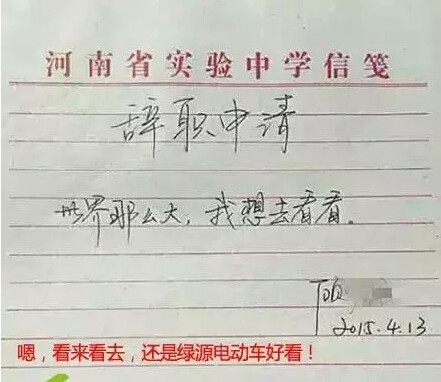 河南省实验中学信笺
辞职申请
世界那么大，我想去看看。
顾
2015.4.13
嗯，看来看去，还是绿源电动车好看！